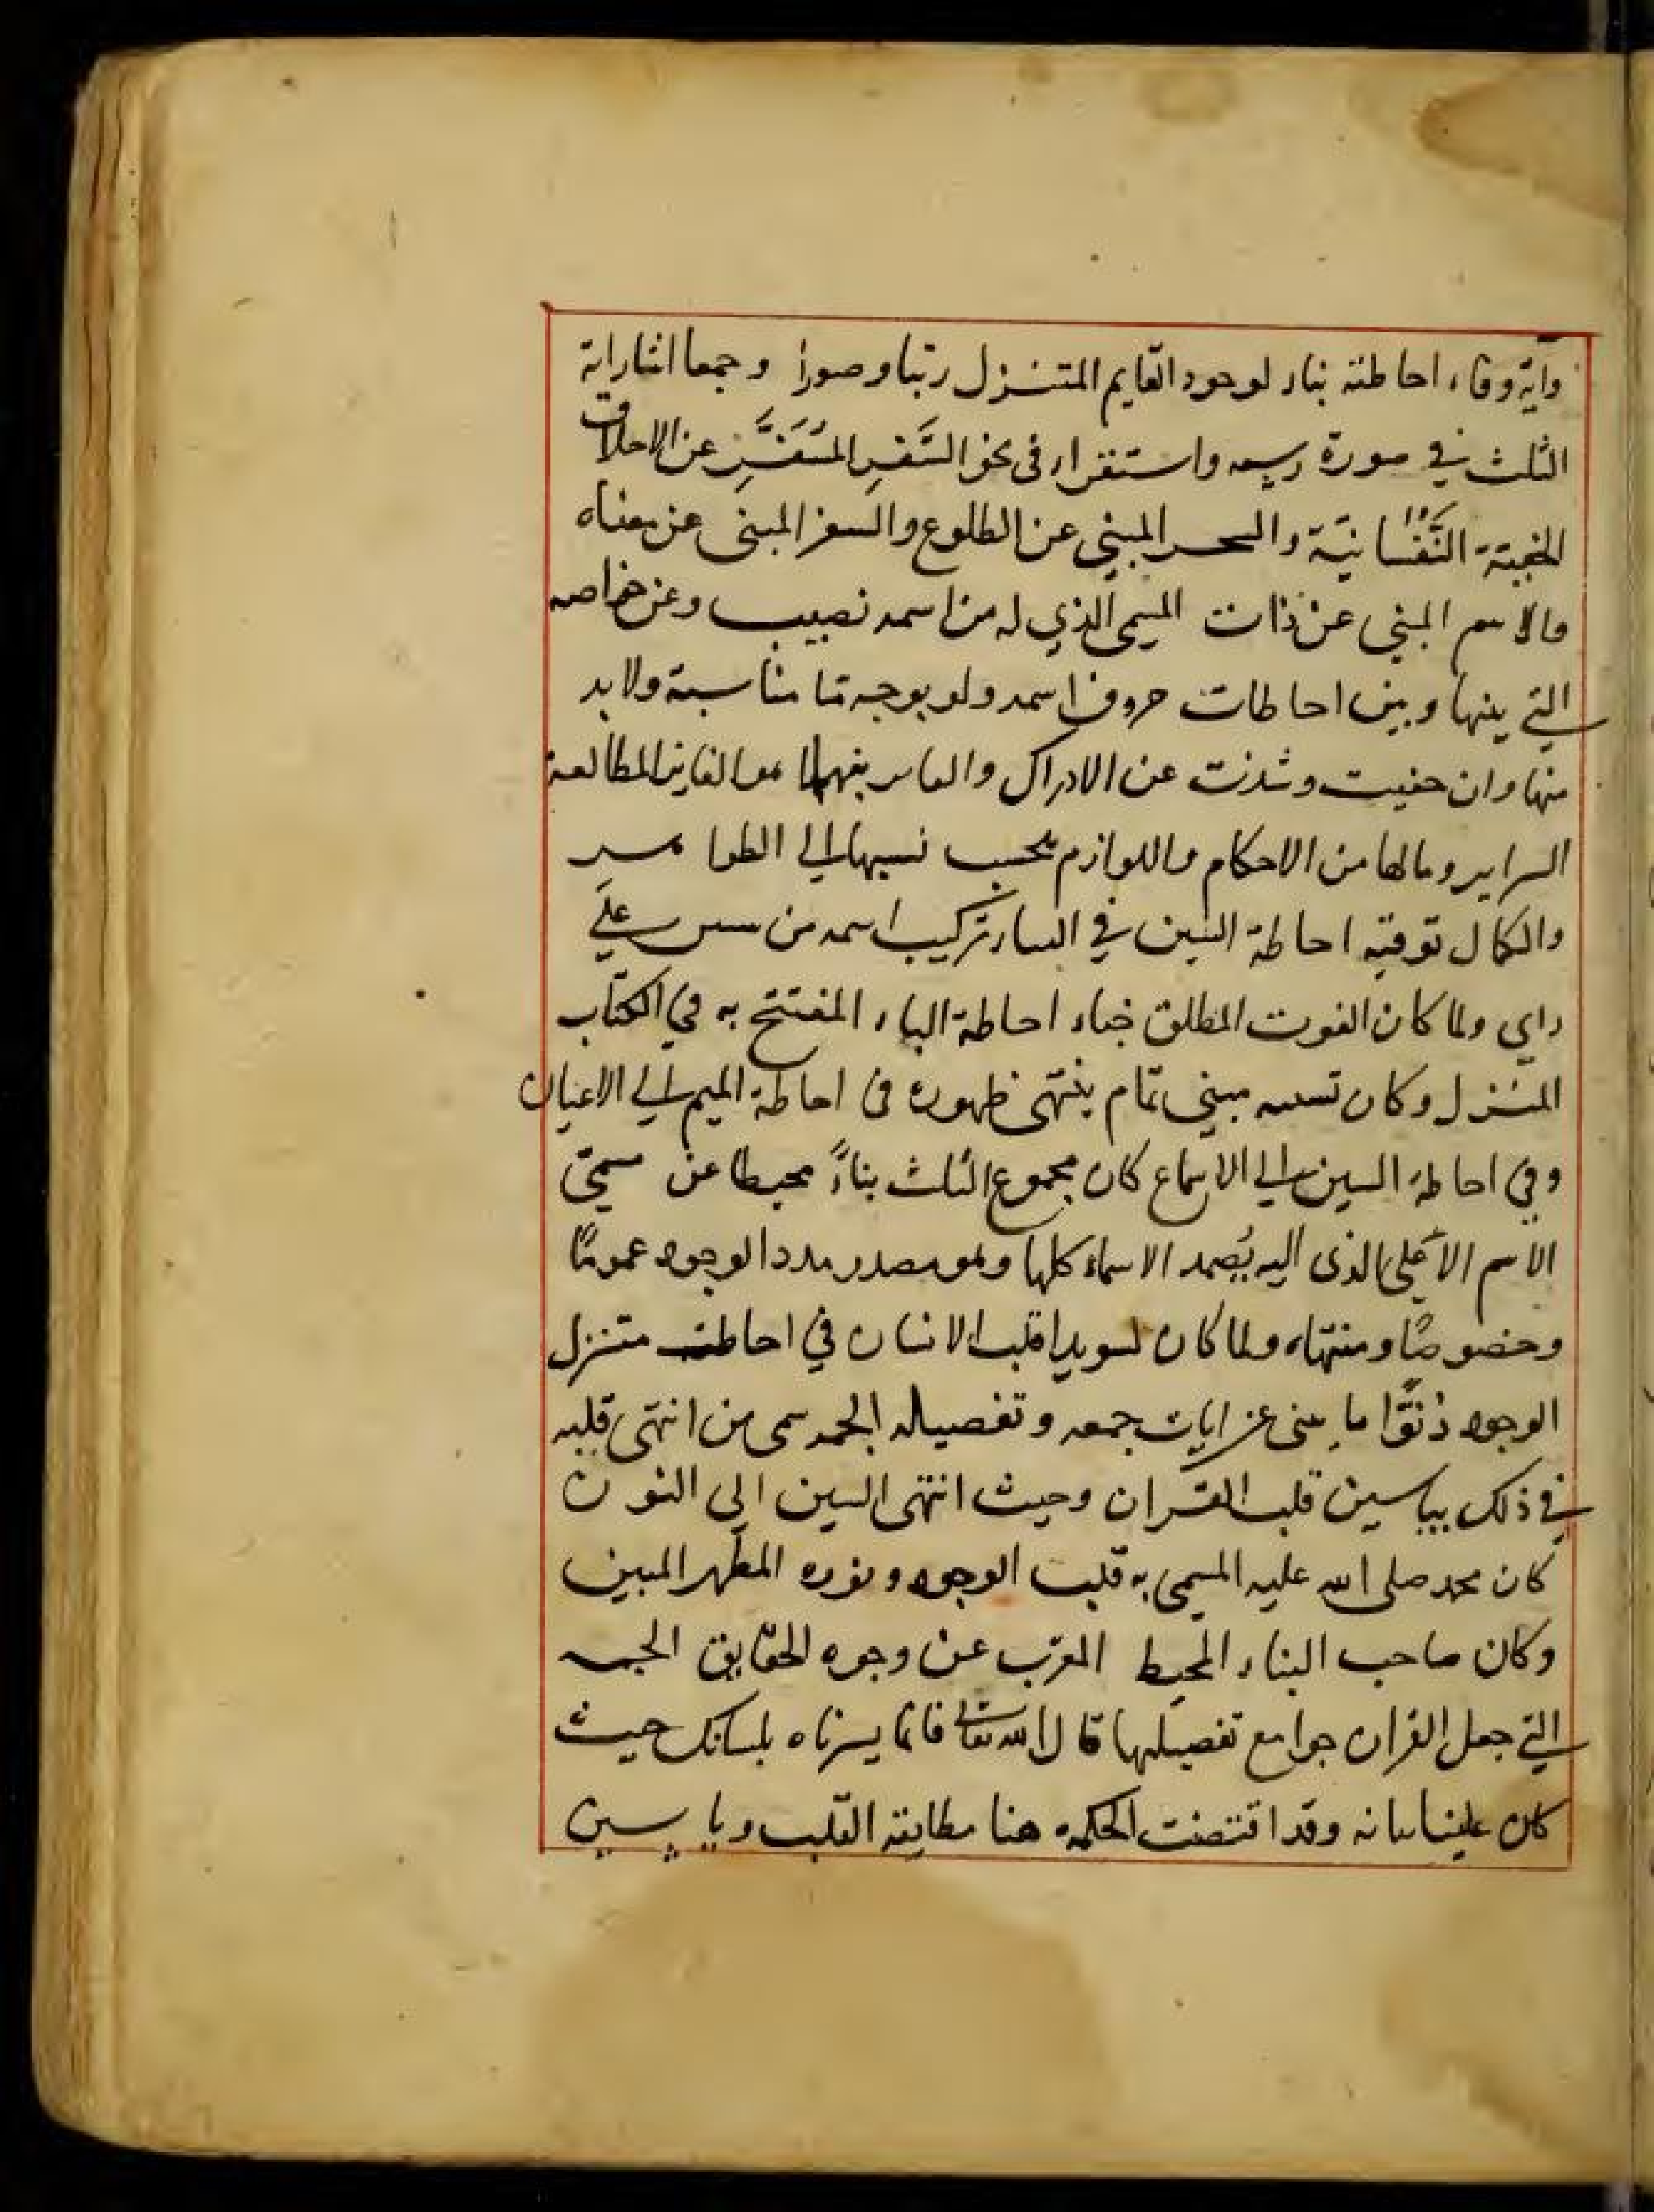 واية وفاء احاطته بناء لوجود القايم المتنزل رتبا وصورا وجمعا
الثلث في صورة واستقراء في نحو عن الاخلاق
النَّفْسانيّة والسحر المبني عن الطلوع والسفر المبنى عن معناه
والاسم المبني عن ذات المسمى الذي له من اسمه نصيب وعن خواصه
التي بينها وبين احاطات حروف اسمه ولو بوجه ما مناسبة ولا بد
منها وان خفيت وشذت عن الادراك بفهمها المطالعة
السراير وما لها من الاحكام واللوازم بحسب نسبها الي
والكمال توفية احاطة السين في تركيب اسمه من علي
راي ولما كان الغوث المطلق خباء احاطة الباء المفتتح به في الكتاب
المنزل وكان مبنى تمام ينتهى ظهوره في احاطة الميم الي الاعيان
وفي احاطة السين الي الاسماع كان مجموع الثلث بناءً محيطا عن مسمى
الاسم الاعلى الذي اليه يُصمد الاسماء كلها وهو مصدر مدد الوجود عمومًا
وخصوصًا ومنتهاه ولما كان لسويدا قلب الانسان في احاطت متنزل
الوجود ذوقًا ما عن ايات جمعه وتفصيله الحمد سمى من انتهى قلبه
في ذلك بياسين قلب القران وحيث انتهى السين الي النون
كان محمد صلى الله عليه المسمى به قلب الوجود ونوره المظهر المبين
وكان صاحب البناء المحيط المعرب عن وجوه الحقايق
التي جعل القران جوامع تفصيلها قال الله تعالى فانما يسرناه بلسانك حيث
كان علينا بيانه وقد اقتضت الحكمه هنا مطابقة القلب وياسين